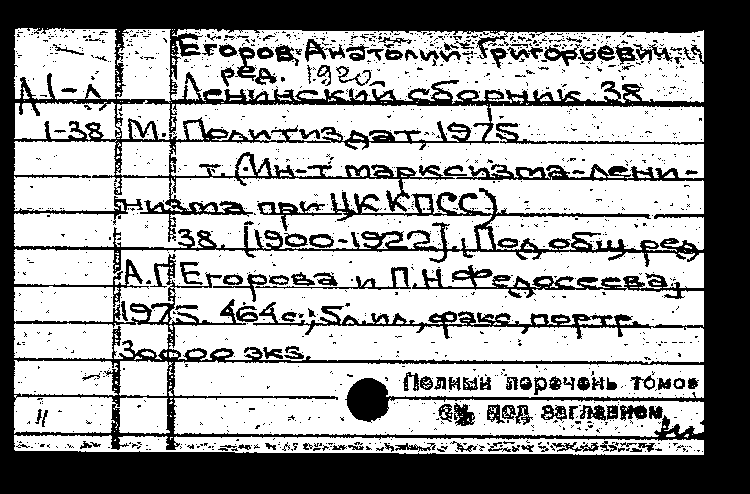 Егоров, Анатолий Григорьевич,
ред. 1920
1-л Ленинский сборник. 38
1-38 М. Политиздат, 1975.
т. (Ин-т марксизма-лени-
низма при ЦК КПСС).
38. [1900-1922]. Под общ. ред
А.Г Егорова и П.Н. Федосеева,
1975. 464 с.; 5 л. ил., факс., портр.
30000 экз.
Полный перечень томов
см. под заглавием
11